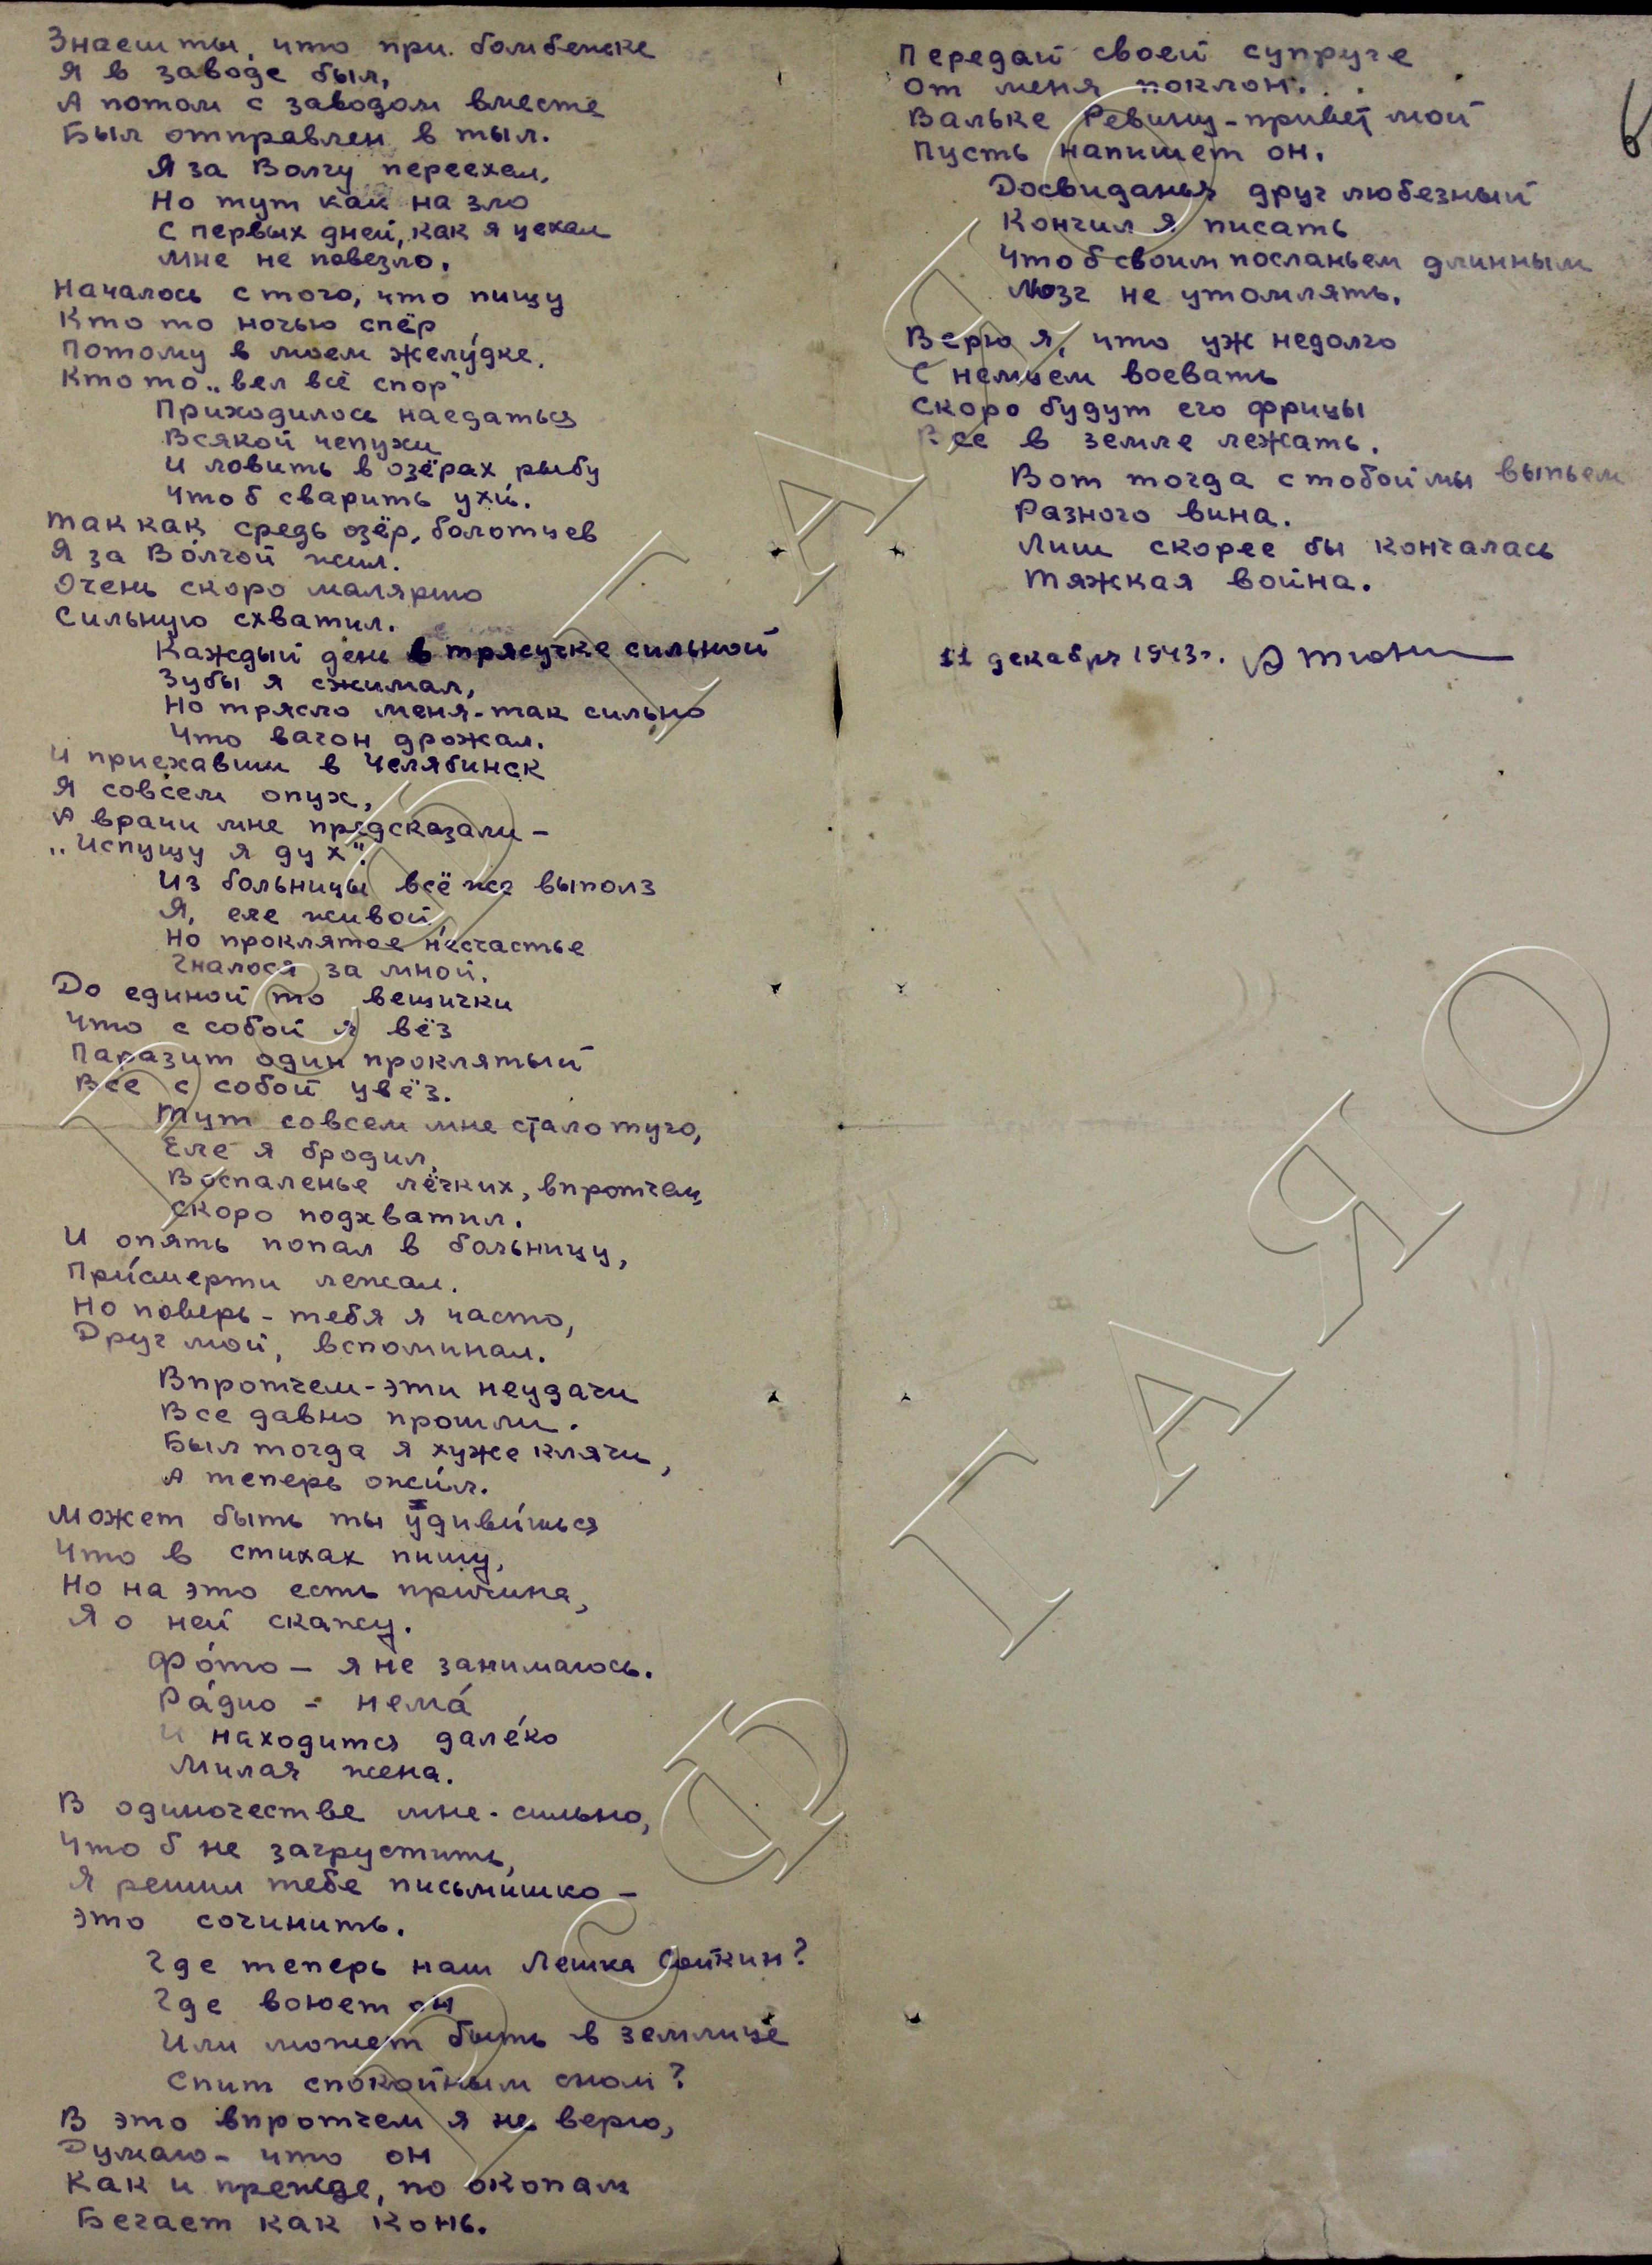 Знаешь ты, что при бомбежке
Я в заводе был,
А потом с заводом вместе
Был отправлен в тыл.
Я за Волгу переехал,
Но тут как на зло
С первых дней, как я уехал
Мне не повезло.
Началось с того, что пищу
Кто то ночью спёр
Потому в моем желу́дке
Кто то „вел всё спор"
Приходилось наедаться
Всякой чепухи
И ловить в озёрах рыбу
Чтоб сварить ухи́.
Так как средь озёр, болотцев
Я за Во́лгой жил.
Очень скоро малярию
Сильную схватил.
Каждый день в трясучке сильной
Зубы я сжимал,
Но трясло меня - так сильно
Что вагон дрожал.
И приехавши в Челябинск
Я совсем опух,
А врачи мне предсказали -
„Испущу я дух".
Из больницы всё же выполз
Я, еле живой,
Но проклятое несчастье
Гналося за мной.
До единой то вещички
Что с собой я вёз
Паразит один проклятый
Все с собой увёз.
Тут совсем мне стало туго,
Еле я бродил,
Воспаленье лёгких, впротчем,
Скоро подхватил.
И опять попал в больницу,
При́смерти лежал.
Но поверь - тебя я часто,
Друг мой, вспоминал.
Впротчем - эти неудачи
Все давно прошли.
Был тогда я хуже клячи,
А теперь ожи́л.
Может быть ты удиви́шься
Что в стихах пишу,
Но на это есть причина,
Я о ней скажу.
Фо́то - я не занимаюсь.
Ра́дио - нема́
И находится дале́ко
Милая жена.
В одиночестве мне - сильно,
Что б не загрустить,
Я решил тебе письми́шко -
Это сочинить.
Где теперь наш Лешка Сайкин?
Где воюет он
Или может быть в землице
Спит спокойным сном?
В это впротчем я не верю,
Думаю - что он
Как и прежде, по окопам
Бегает как конь.
Передай своей супруге
От меня поклон.
Вальке Ревину - привет мой
Пусть напишет он.
Досвиданья друг любезный
Кончил я писать
Чтоб своим посланьем длинным
Мозг не утомлять.
Верю я, что уж недолго
С немцем воевать
Скоро будут его фрицы
Все в земле лежать.
Вот тогда с тобой мы выпьем
Разного вина.
Лиш скорее бы кончалась
Тяжкая война.
11 декабря 1943 г.
РОСФОТО ГАЯО